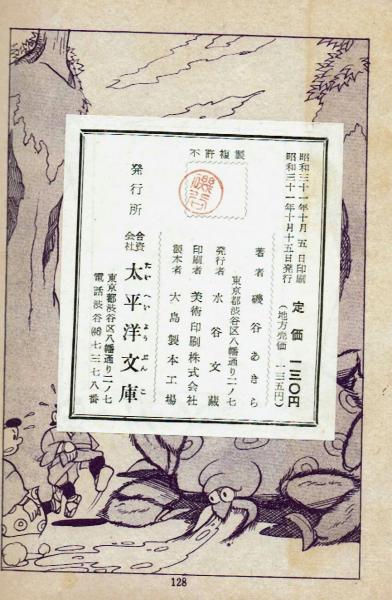 昭和三十一年十月五日印刷
昭和三十一年十月十五日発行
定価一三〇円
(地方売価 一三五円)
不許複製
著者 磯谷あきら
東京都渋谷区八幡通り二ノ七
発行者 水谷文蔵
印刷者 美術印刷株式会社
製本者 大島製本工場
発行所
合資会社 太平洋文庫
たいへいようぶんこ
東京都渋谷区八幡通り二ノ七
電話渋谷㊻七三七八番
128